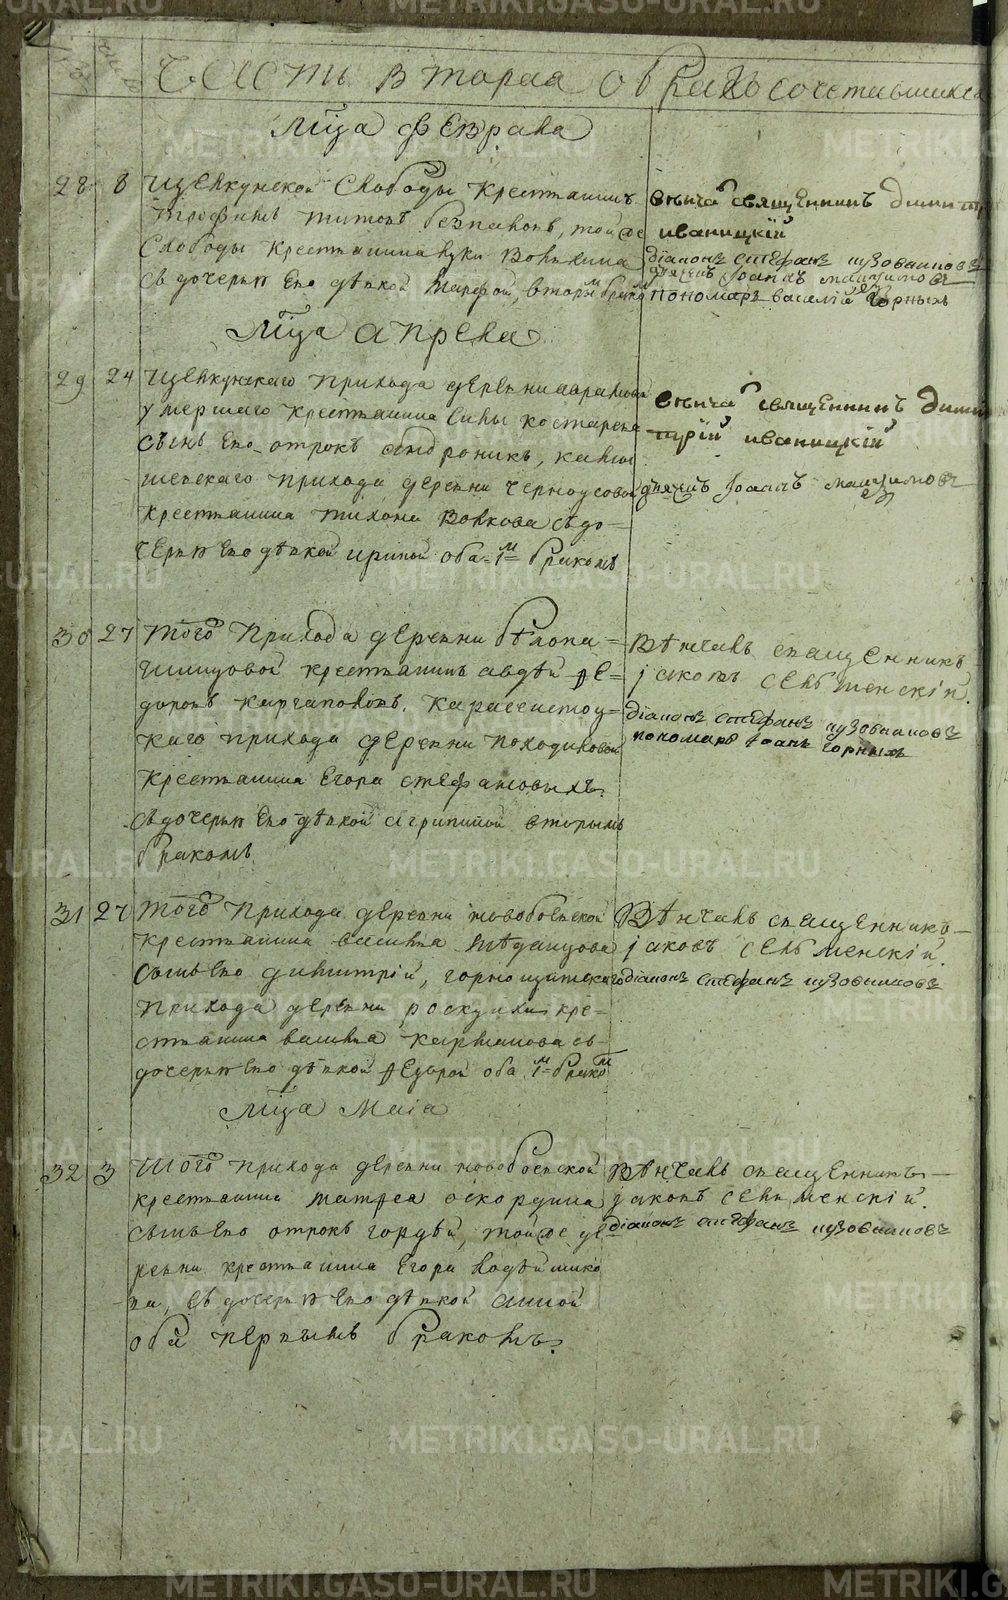 Часть вторая о бракосочетавшихся
Мца февраля
28 8 Щелкунской Слободы Крестьянинъ
Трофимъ Титовъ безпаловъ, тойже
Слободы Крестьянина луки Вонилина
съ дочерью Ево девкой Марфой, вторымъ бракомъ
венчалъ священникъ Димитрій
иваницкій
діаконъ стефанъ пузовниковъ
дьячекъ Іоаннъ максимовъ
пономарь василій Горныхъ
Мца апреля
29 24 Щелкунскаго прихода деревни аврамовой
умершаго Крестьянина Силы костарева
сынъ Ево отрокъ андроникъ, камы
шевскаго прихода деревни черноусовой
Крестьянина тихона Волкова съ до-
черью Ево девкой ириной оба 1м бракомъ
венчалъ священникъ Дими
трій иваницкій
дьячекъ Іоаннъ максимовъ
30 27 Того прихода деревни белопа-
шинцовой крестьянинъ авдей фе-
доровъ каргаполовъ. Карасеисток-
каго прихода деревни походиловой
крестьянина Егора стефановыхъ.
съ дочерью Ево девкой агрипиной вторымъ
бракомъ
Вѣнчалъ священникъ
іаковъ сельменскій
діаконъ стефанъ пузовниковъ
пономарь Іоанъ Горныхъ
31 27 Того прихода деревни новобоевской
крестьянина василья
сынъ Ево димитрій, горнощитскаго
прихода деревни роскухи кре-
стьянина василья каржавова съ
дочерью Ево девкой федорой оба 1м бракомъ
Вѣнчалъ священникъ
іаковъ сельменскій.
діаконъ стефанъ пузовниковъ
Мца Маія
32 3 Того прихода деревни новобоевской
крестьянина патреа оскордина
сынъ Ево отрокъ гордей, тойже де
ревни крестьянина Егора
съ дочерью Ево девкой анной
оба первымъ бракомъ.
Вѣнчалъ священникъ
іаковъ сельменскій.
діаконъ стефанъ пузовниковъ
METRIKI.GASO-URAL.RU